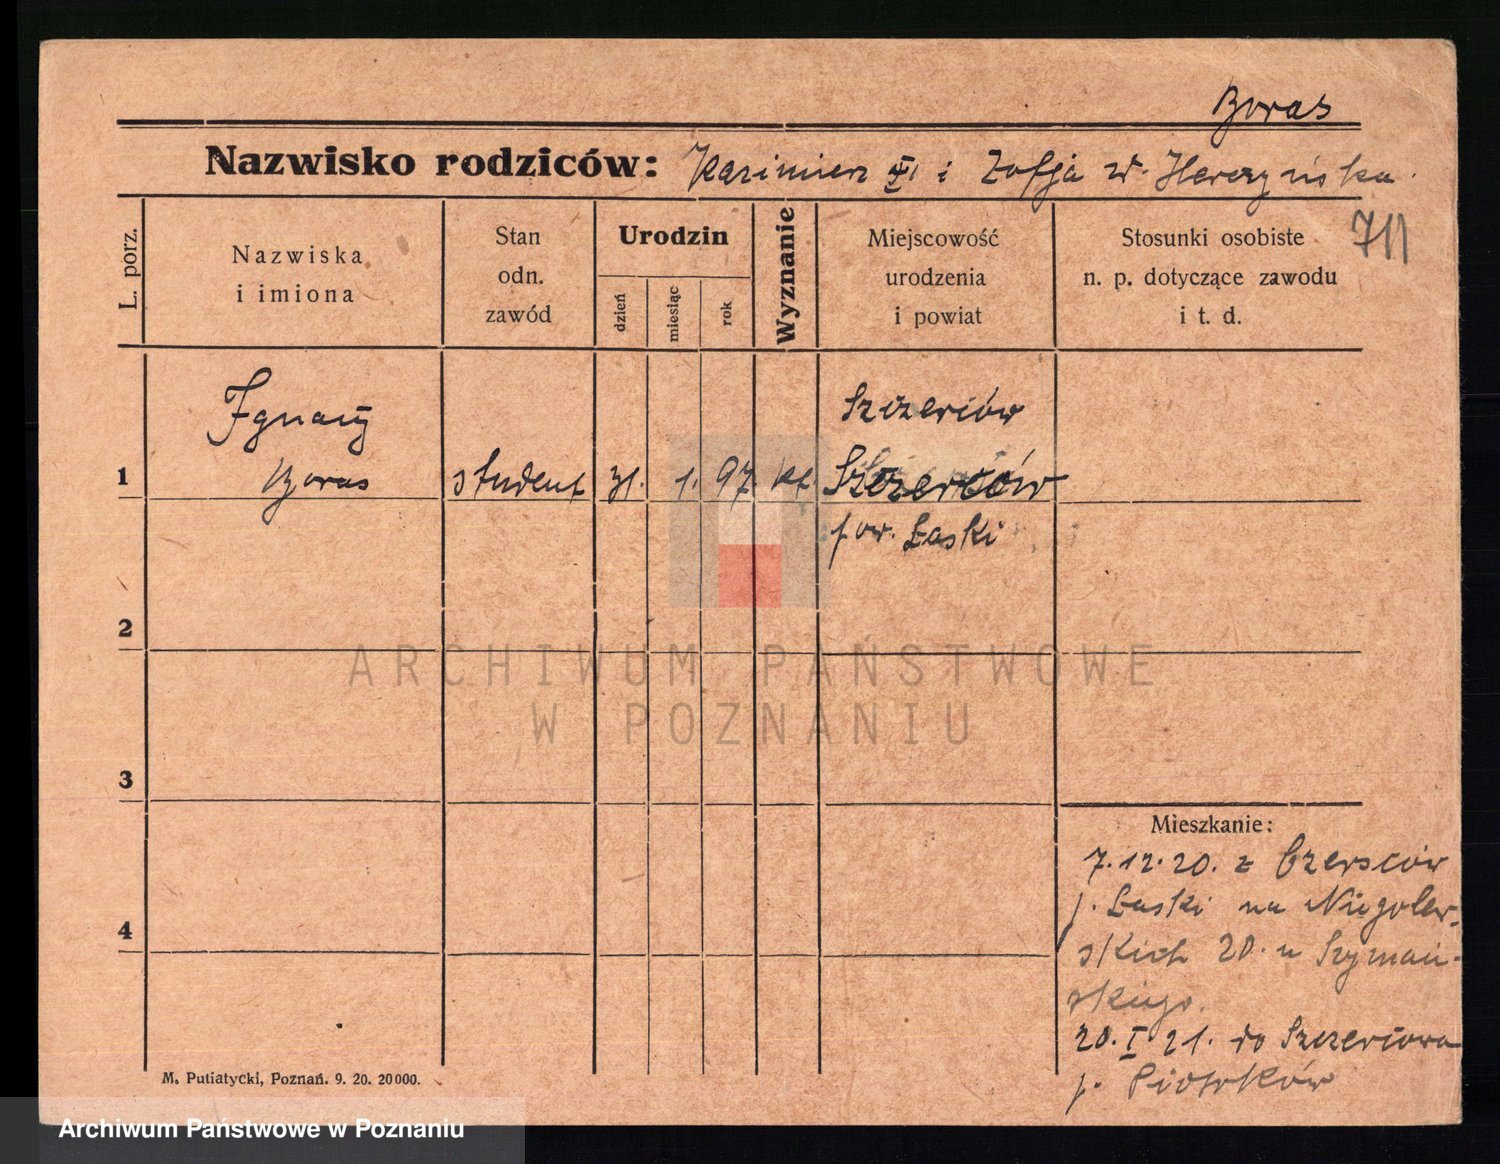 Boras
Nazwisko rodziców: Kazimierz i Zofja z Herczyńska
711
L. porz.
Nazwiska
i imiona
Stan
odn.
zawód
Urodzin
dzień
miesiąc
rok
Wyznanie
Miejscowość
urodzenia
i powiat
Stosunki osobiste
n. p. dotyczące zawodu
i t. d.
Ignacy
Szczerców
1 Boras student 31. 1. 97 kt. Szczerców
pow. Łaski
2
3
4
ARCHIWUM PAŃSTWOWE
W POZNANIU
Mieszkanie:
7.12.20. z Czersców
p. Łaski na Niegolew-
skich 20. u Szymań-
skiego.
20. I 21. do Szczercowa
p. Piotrków
M. Putiatycki, Poznań. 9. 20. 20000.
Archiwum Państwowe w Poznaniu